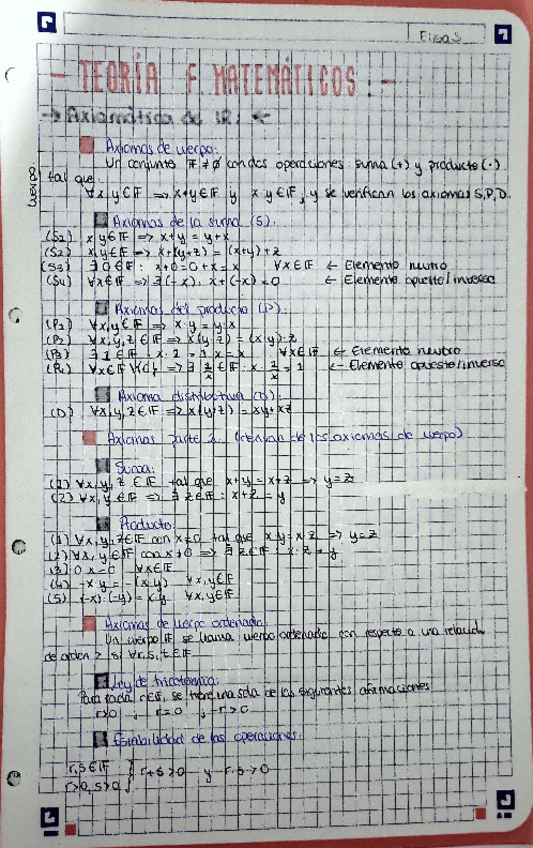 Física
- TEORÍA F. MATEMÁTICOS: -
→ Axiomática de IR: ←
Axiomas de cuerpo:
Un conjunto F ≠ ∅ con dos operaciones: suma (+) y producto (·)
tal que:
∀x,y∈F ⇒ x+y∈F y x·y∈F, y se verifican los axiomas S,P,D.
cuerpo
Axiomas de la suma (S):
(S1) x,y∈F ⇒ x+y = y+x
(S2) x,y∈F ⇒ x+(y+z) = (x+y)+z
(S3) ∃0∈F: x+0=0+x=x ∀x∈F ← Elemento neutro
(S4) ∀x∈F ⇒ ∃(-x): x+(-x)=0 ← Elemento opuesto/inverso
Axiomas del producto (P):
(P1) ∀x,y∈F ⇒ x·y = y·x
(P2) ∀x,y,z∈F ⇒ x(y·z) = (x·y)·z
(P3) ∃1∈F: x·1=1·x=x ∀x∈F ← Elemento neutro
(P4) ∀x∈F\{0} ⇒ ∃ 1/x ∈F: x· 1/x = 1 ← Elemento opuesto/inverso
Axioma distributiva (D):
(D) ∀x,y,z∈F ⇒ x(y+z) = xy+xz
Axiomas parte 2. (derivan de los axiomas de cuerpo)
Suma:
(1) ∀x,y,z∈F tal que x+y = x+z ⇒ y=z
(2) ∀x,y∈F ⇒ ∃z∈F: x+z = y
Producto:
(1) ∀x,y,z∈F con x≠0 tal que x·y=x·z ⇒ y=z
(2) ∀x,y∈F con x≠0 ⇒ ∃z∈F: x·z = y
(3) 0·x=0 ∀x∈F
(4) -x·y = -(x·y) ∀x,y∈F
(5) (-x)·(-y) = x·y ∀x,y∈F
Axiomas de cuerpo ordenado:
Un cuerpo F se llama cuerpo ordenado con respecto a una relación
de orden > si ∀r,s,t∈F
Ley de tricotomía:
Para cada r∈F, se tiene una sola de las siguientes afirmaciones
r>0 , r=0 , -r>0
Estabilidad de las operaciones:
r,s∈F
r>0,s>0 } r+s>0 y r·s>0